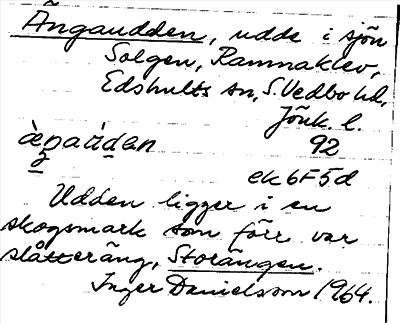 Ängaudden, udde i sjön
Solgen, Ramnaklev,
Edshults sn, S. Vedbo hd,
Jönk. l.
92
ek 6F5d
Udden ligger i en
skogsmark som förr var
slåtteräng, Storängen.
Inger Danielsson 1964.